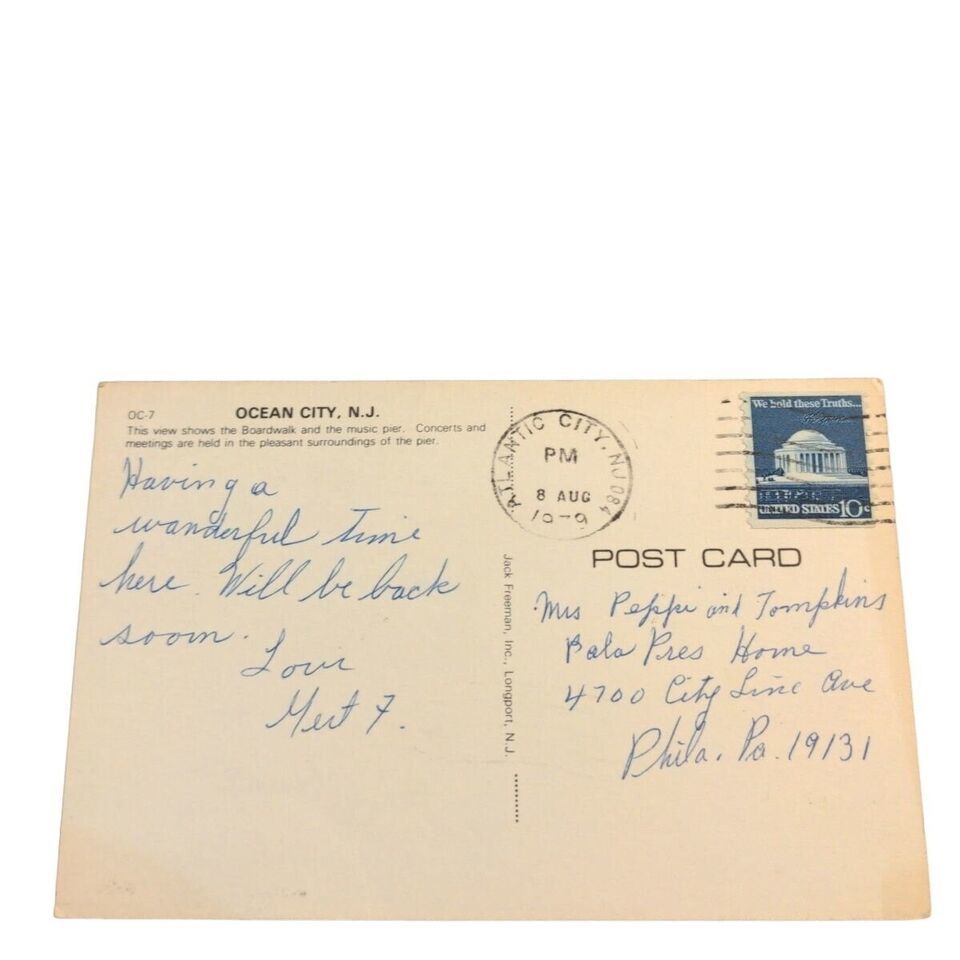 OC-7 OCEAN CITY, N.J.
This view shows the Boardwalk and the music pier. Concerts and
meetings are held in the pleasant surroundings of the pier.
Having a
wonderful time
here. Will be back
soon.
Love
Mert F.
Jack Freeman, Inc., Longport, N.J.
ATLANTIC CITY, NJ 084
PM
8 AUG
1979
We hold these Truths...
UNITED STATES 10c
POST CARD
Mrs Peppi and Tompkins
Bala Pres Home
4700 City Line Ave
Phila. Pa. 19131